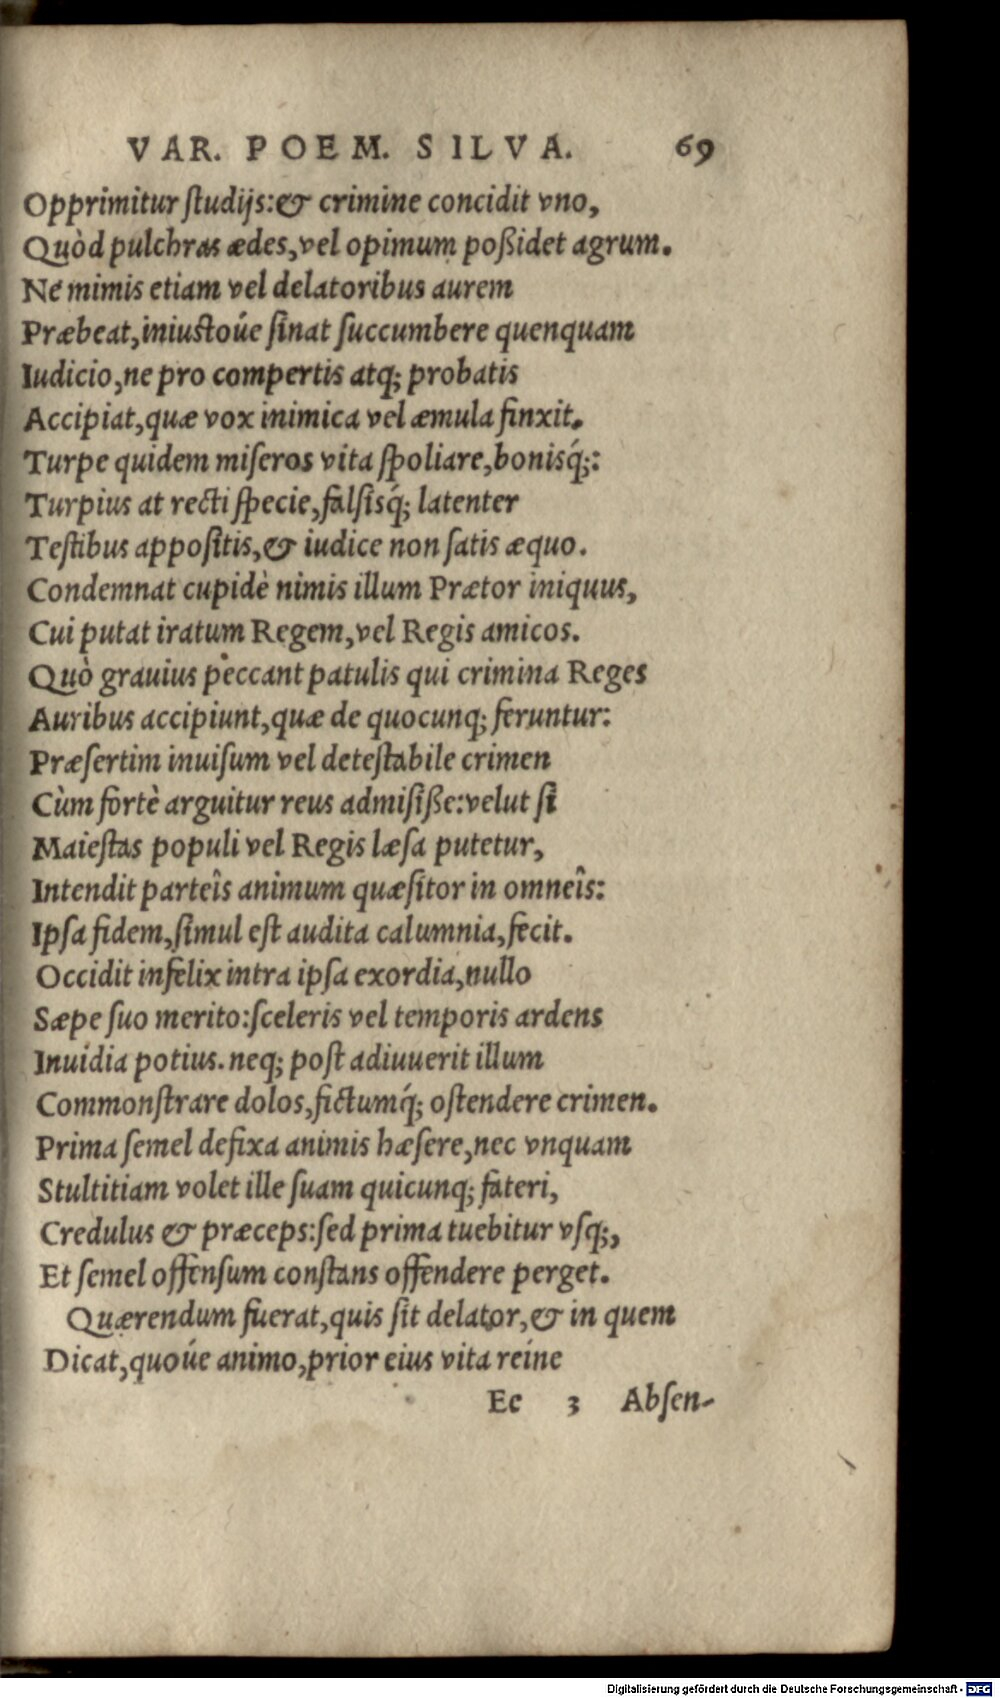 VAR. POEM. SILVA. 69
Opprimitur ſtudijs:& crimine concidit vno,
Quòd pulchras ædes,vel opimum poßidet agrum.
Ne mimis etiam vel delatoribus aurem
Præbeat,iniustoúe ſinat ſuccumbere quenquam
Iudicio,ne pro compertis atq; probatis
Accipiat,quæ vox inimica vel æmula finxit.
Turpe quidem miſeros vita ſpoliare,bonisq́;:
Turpius at recti ſpecie,falſisq́; latenter
Teſtibus appoſitis,& iudice non ſatis æquo.
Condemnat cupidè nimis illum Prætor iniquus,
Cui putat iratum Regem,vel Regis amicos.
Quò grauius peccant patulis qui crimina Reges
Auribus accipiunt,quæ de quocunq; feruntur:
Præſertim inuiſum vel deteſtabile crimen
Cùm fortè arguitur reus admiſiße:velut ſi
Maieſtas populi vel Regis læſa putetur,
Intendit parteîs animum quæſitor in omneîs:
Ipſa fidem,ſimul eſt audita calumnia,fecit.
Occidit infelix intra ipſa exordia,nullo
Sæpe ſuo merito:ſceleris vel temporis ardens
Inuidia potius.neq; poſt adiuuerit illum
Commonſtrare dolos,fictumq́; oſtendere crimen.
Prima ſemel defixa animis hæſere,nec vnquam
Stultitiam volet ille ſuam quicunq; fateri,
Credulus & præceps:ſed prima tuebitur vſq;,
Et ſemel offenſum conſtans offendere perget.
Quærendum fuerat,quis ſit delator,& in quem
Dicat,quoúe animo,prior eius vita reíne
Ee 3 Abſen-
Digitalisierung gefördert durch die Deutsche Forschungsgemeinschaft - DFG